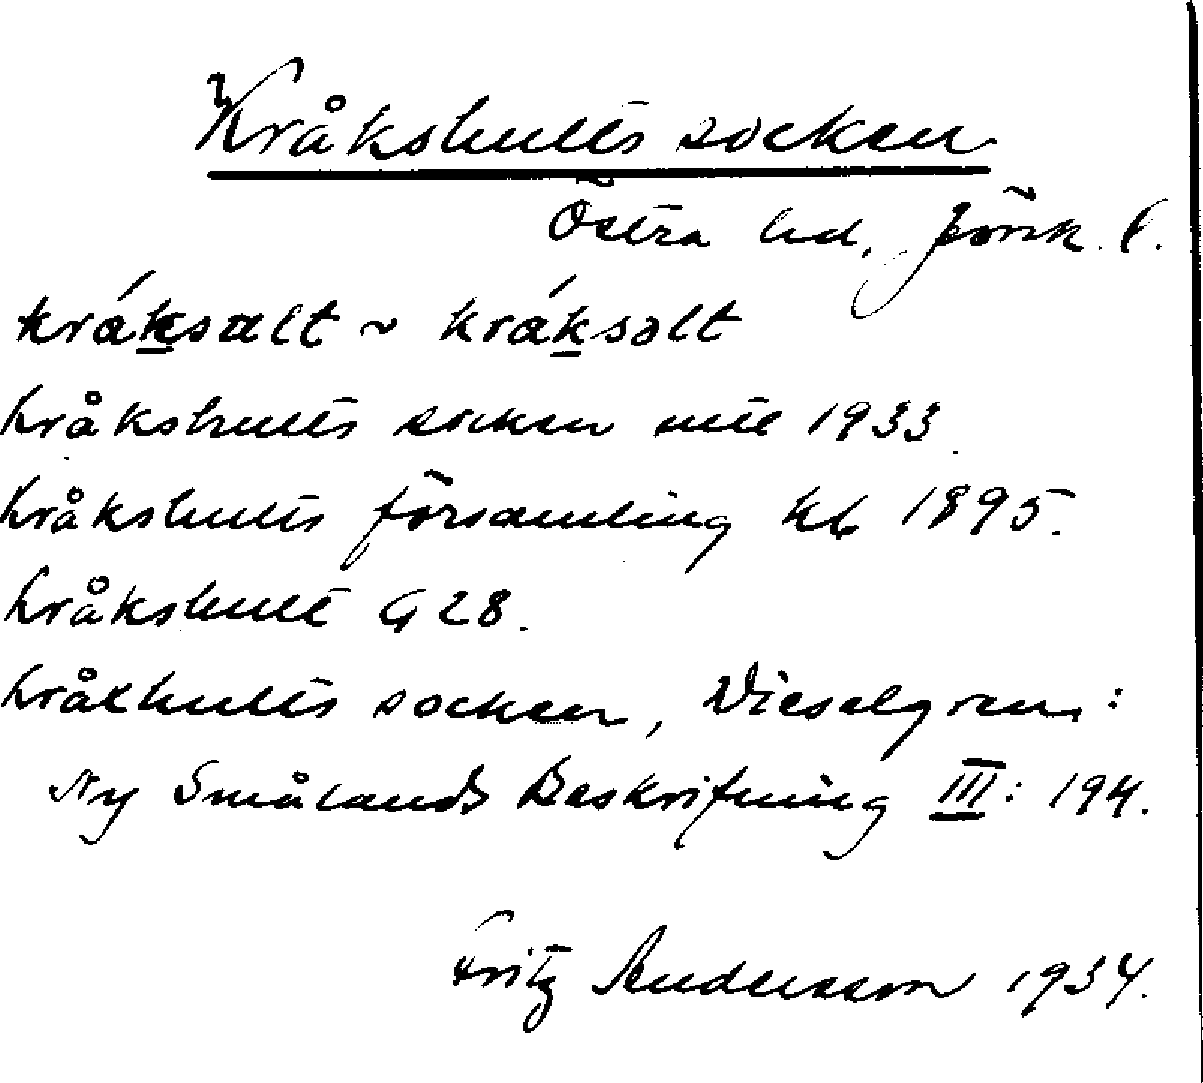 Kråkshults socken
Östra hd, Jönk. l.
kráksalt ~ kráksɔlt
Kråkshults socken mtl 1933.
Kråkshults församling kb 1895.
Kråkshult G 28.
Kråkhults socken, Wieselgren:
Ny Smålands Beskrifning III: 194.
Fritz Andersson 1934.